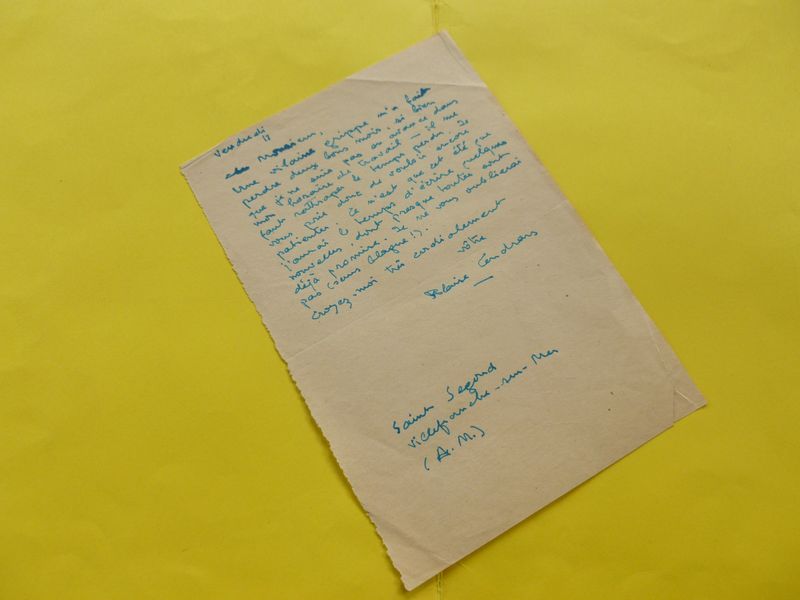 Vendredi 11
cher Monsieur,
Une vilaine grippe m'a fait
perdre deux bons mois, si bien
que je ne suis pas en avance dans
mon horaire de travail – il me
faut rattraper le temps perdu. Je
vous prie donc de vouloir encore
patienter. Ce n'est que cet été que
j'aurai le temps d'écrire quelques
nouvelles dont presque toutes sont
déjà promises. Je ne vous oublierai
pas (sans blague!).
Croyez-moi très cordialement
vôtre
Blaise Cendrars
Saint Segond
Villefranche-sur-Mer
(A.M.)